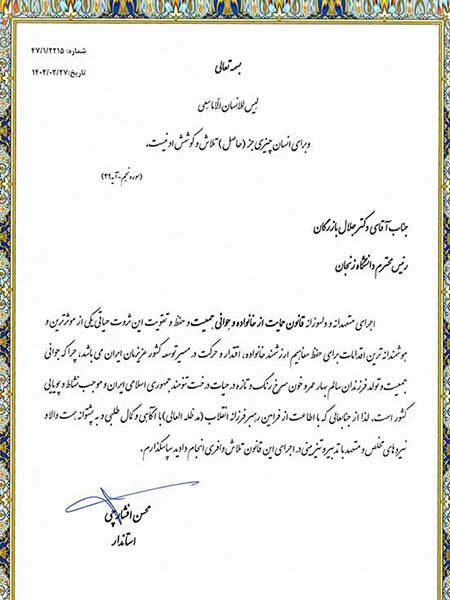 شماره: ۴۷/۱/۲۲۱۵
تاریخ: ۱۴۰۲/۰۲/۲۷
بسمه تعالی
لیس للانسان الا ما سعی
و برای انسان چیزی جز (حاصل) تلاش و کوشش او نیست.
(سوره نجم-آیه ۳۹)
جناب آقای دکتر جلال بازرگان
رئیس محترم دانشگاه زنجان
اجرای متعهدانه و دلسوزانه قانون حمایت از خانواده و جوانی جمعیت و حفظ و تقویت این ثروت حیاتی یکی از موثرترین و
هوشمندانه ترین اقدامات برای حفظ مفاهیم ارزشمند خانواده، اقتدار و حرکت در مسیر توسعه کشور عزیزمان ایران می باشد، چرا که جوانی
جمعیت و تولد فرزندان سالم بهار عمر و خون سرخ رنگ و تازه در حیات درخت تنومند جمهوری اسلامی ایران و موجب نشاط و پویایی
کشور است. لذا از جنابعالی که با اطاعت از فرامین رهبر فرزانه انقلاب (مدظله العالی) با آگاهی و کمال طلبی و به پشتوانه همت والا و
نیروهای مخلص و متعهد با تدبیر و تیزبینی در اجرای این قانون تلاش وافری انجام دادید سپاسگذارم.
محسن افشارچی
استاندار